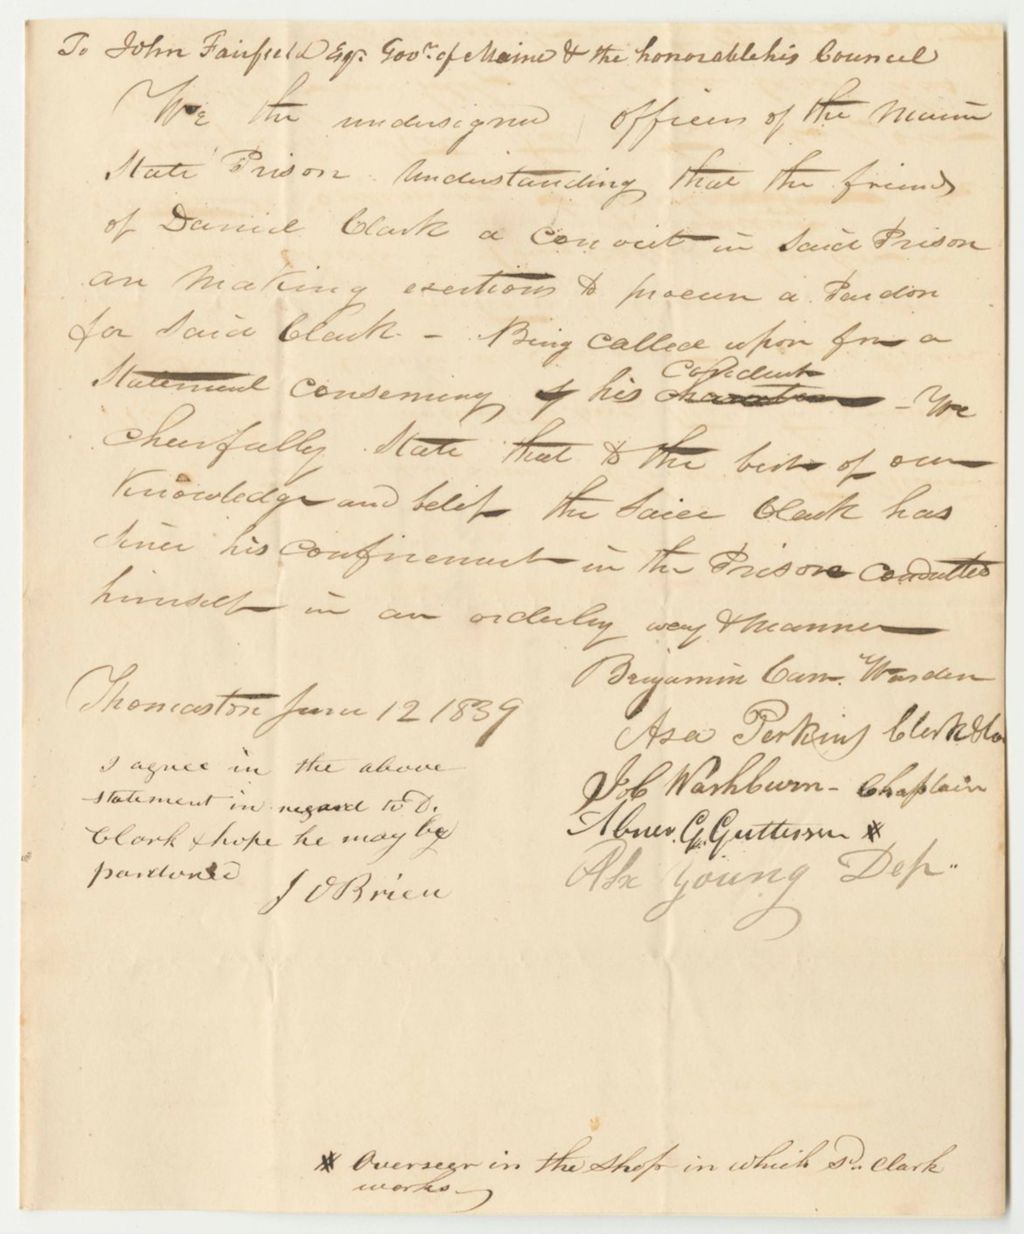 To John Fairfield Esqr. Govr. of Maine & the honorable his Council
We the undersigned officers of the Maine
State Prison Understanding that the friends
of Daniel Clark a convict in said Prison
are making exertions to procure a Pardon
for said Clark - Being called upon for a
Statement concerning of his character Conduct - We
cheerfully State that to the best of our
Knowledge and belief the said Clark has
since his confinement in the Prison conducted
himself in an orderly way & manner
Benjamin Carr Warden
Thomaston June 12 1839
Asa Perkins Clerk &c
Job Washburn - Chaplain
Abner. G. Guttersen *
Young Dep..
I agree in the above
statement in regard to D.
Clark & hope he may be
pardoned
J OBrien
* Overseer in the shop in which Sd. Clark
works